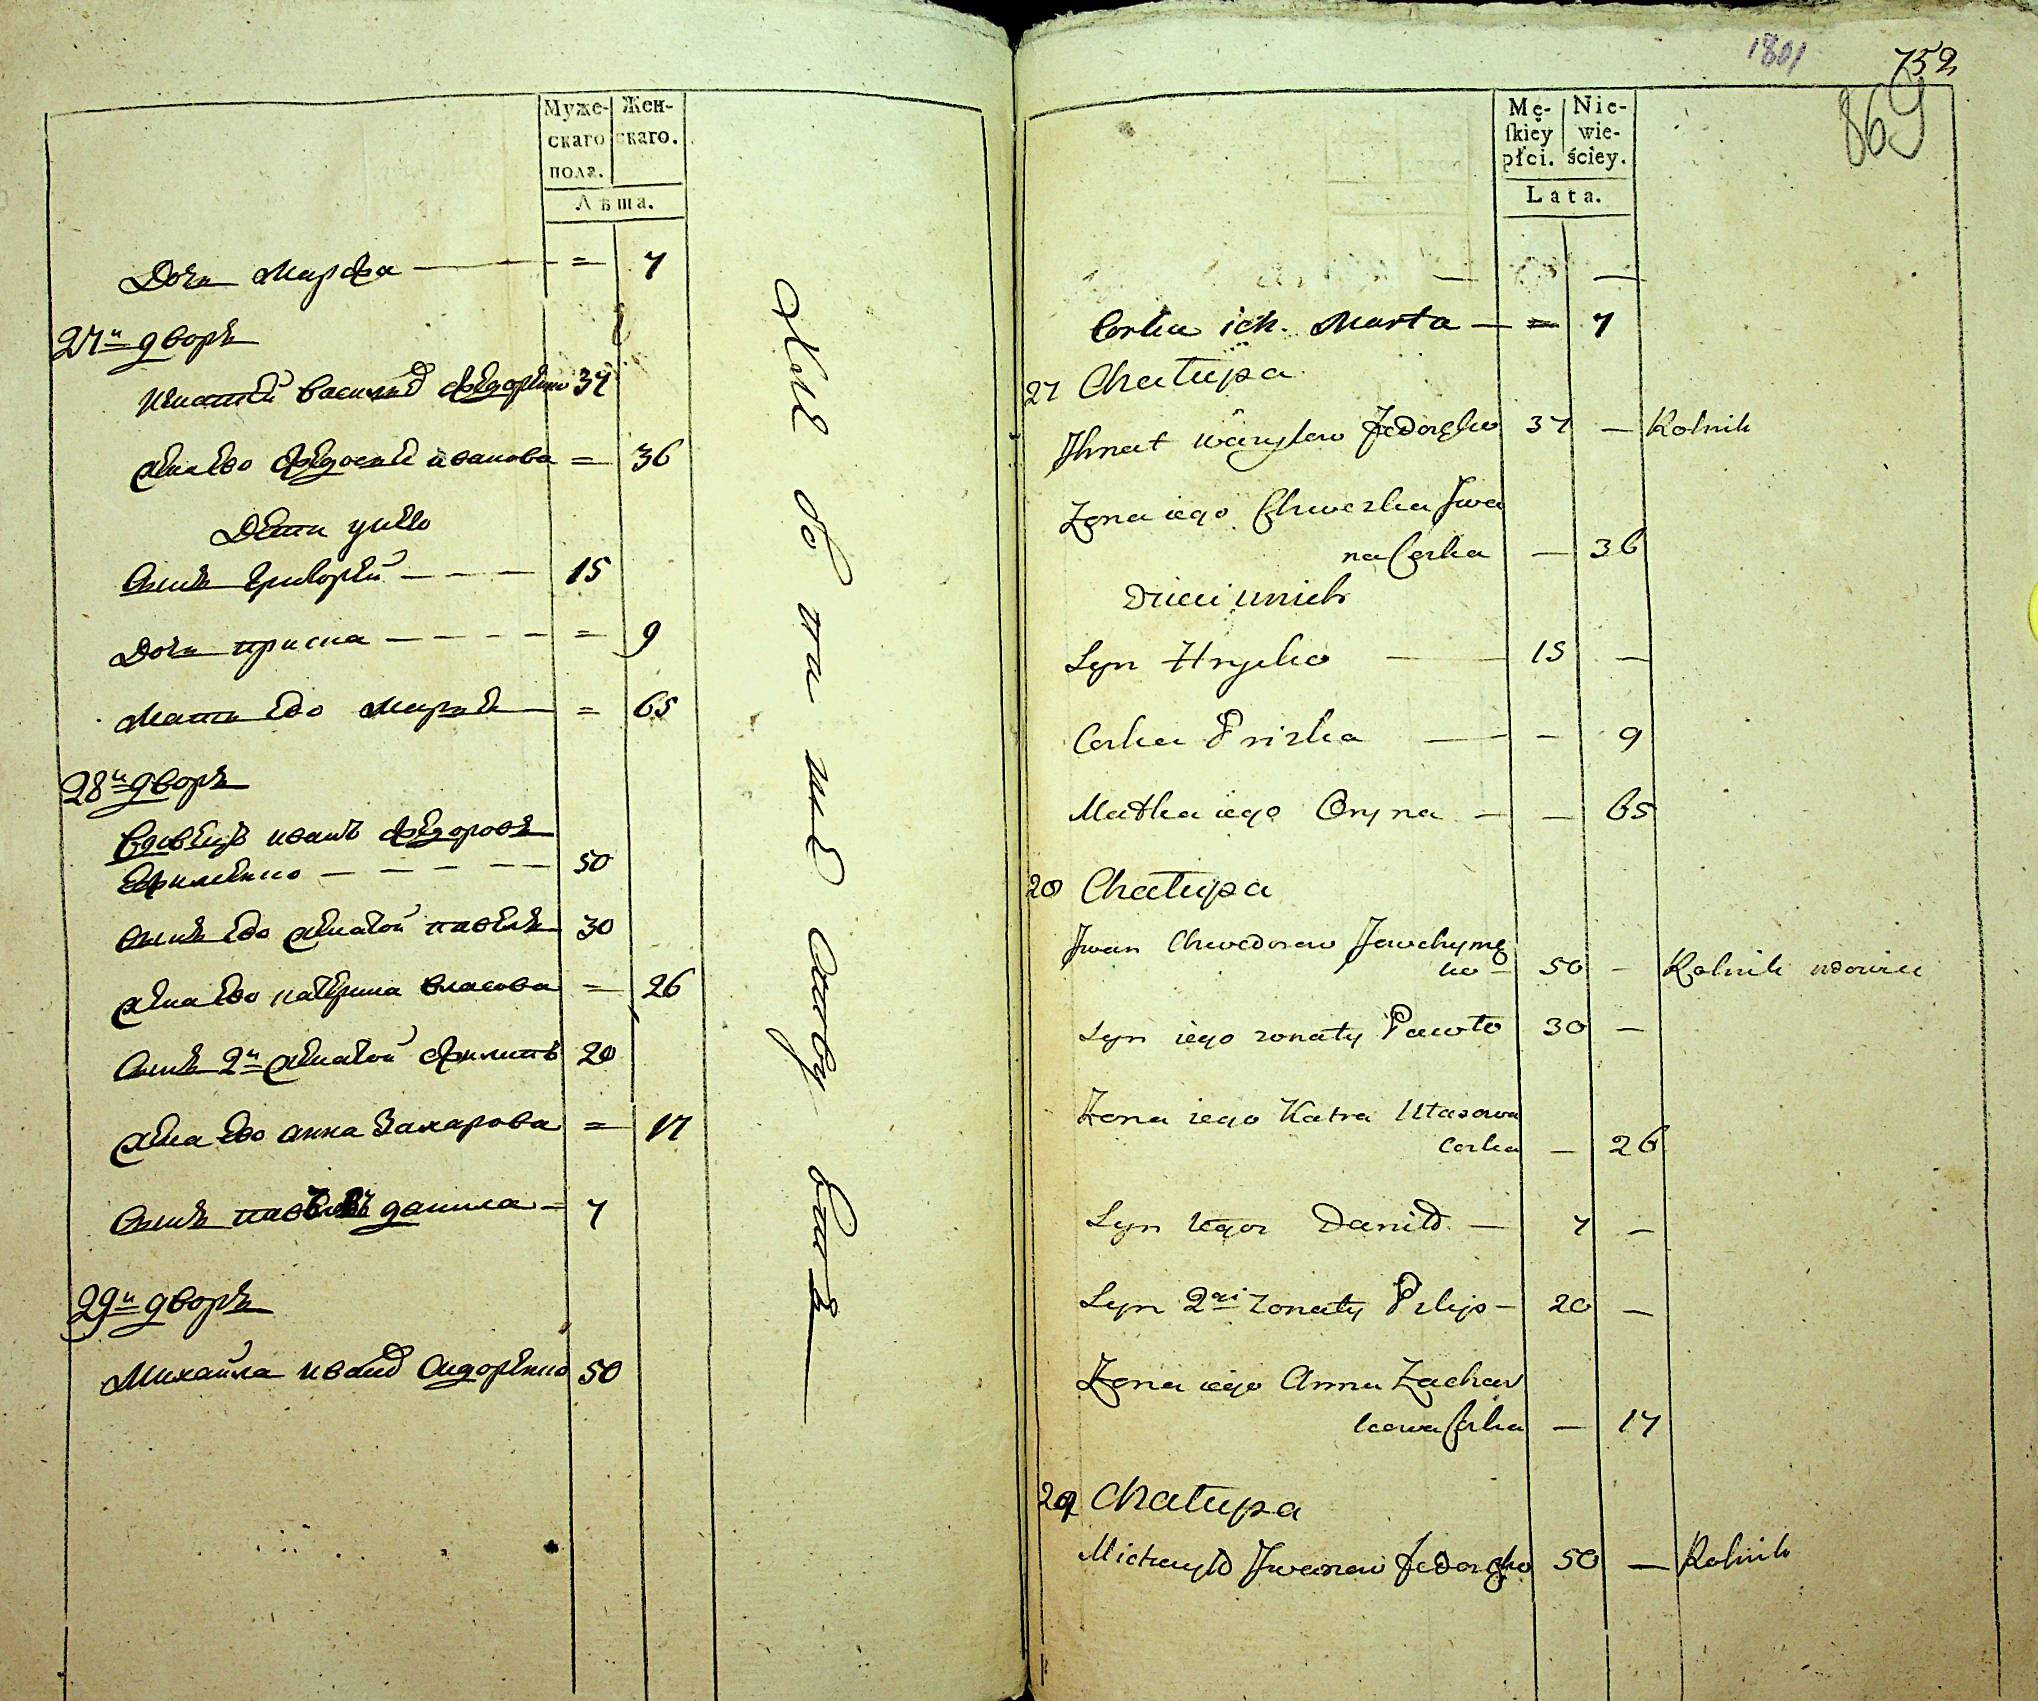 Муже-
скаго
пола.
Жен-
скаго.
Лѣта.
Дочь Марфа — = 7
27й дворъ
Игнатей Василiев Федоренко 37
Жена ево Федосья иванова = 36
Дети у него
Сынъ Григорей — 15
Дочьприска — = 9
Мать ево Марья — = 65
28й дворъ
Вдовецъ иванъ Федоровъ
Ефименко — 50
Сынъ ево женатой павелъ 30
Жена ево катерина власова = 26
Сынъ 2й женатой Филипъ 20
Жена ево анна Захарова = 17
Сынъ павловъ данила = 7
29й дворъ
Михайла иванов Сидоренко 50
1801
752
869
Mę-
ſkiey
płci.
Nie-
wie-
ściey.
Lata.
Corka ich Marta — = 7
27 Chałupa
Ihnat Wasylow Fedoręko 37 — Rolnik
Zona iego Chweska Iwa
na Corka — 36
Dzieci u nich
Syn Hryćko — 15 —
Corka Priska — — 9
Matka iego Oryna — — 65
28 Chałupa
Iwan Chwedorow Jawchymę
ko — 50 — Rolnik wdowiec
Syn iego zonaty Pawło 30 —
Zona iego Katra Ułasowa
Corka — 26
Syn iego Daniło — 7 —
Syn 2gi zonaty Pilip — 20 —
Zona iego Anna Zachar
kowa Corka — 17
29 Chałupa
Michayło Iwanow Sidoręko 50 — Rolnik